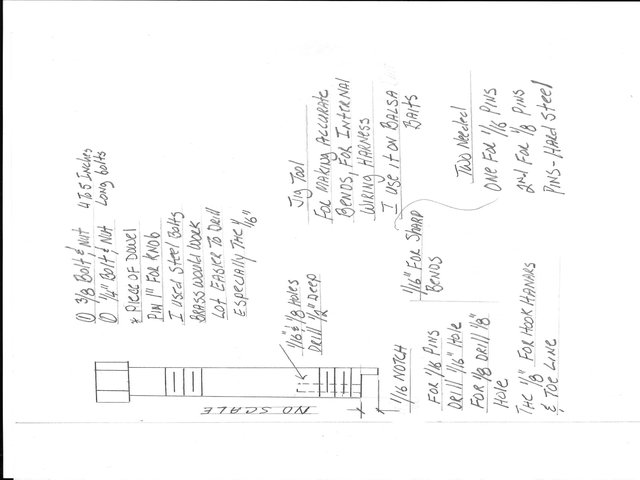 ① 3/8 Bolt & Nut 4 to 5 inches
① 1/4" Bolt & Nut Long bolts
* Piece of Dowel
Pin 1" For Knob
I Used Steel Bolts
Brass Would Work
Lot Easier to Drill
Especially The 1/16"
1/16 & 1/8 Holes
Drill 1/2" Deep
NO SCALE
Jig Tool
For Making Accurate
Bends, For Internal
Wiring Harness
I Use it On Balsa
Baits
1/16" For Sharp
Bends
Two Needed
One For 1/16 Pins
2nd For 1/8 Pins
Pins - Hard Steel
1/16 Notch
For 1/16 Pins
Drill 1/16" Hole
For 1/8 Drill 1/8"
Hole
The 1/8" For Hook
& Toe Line